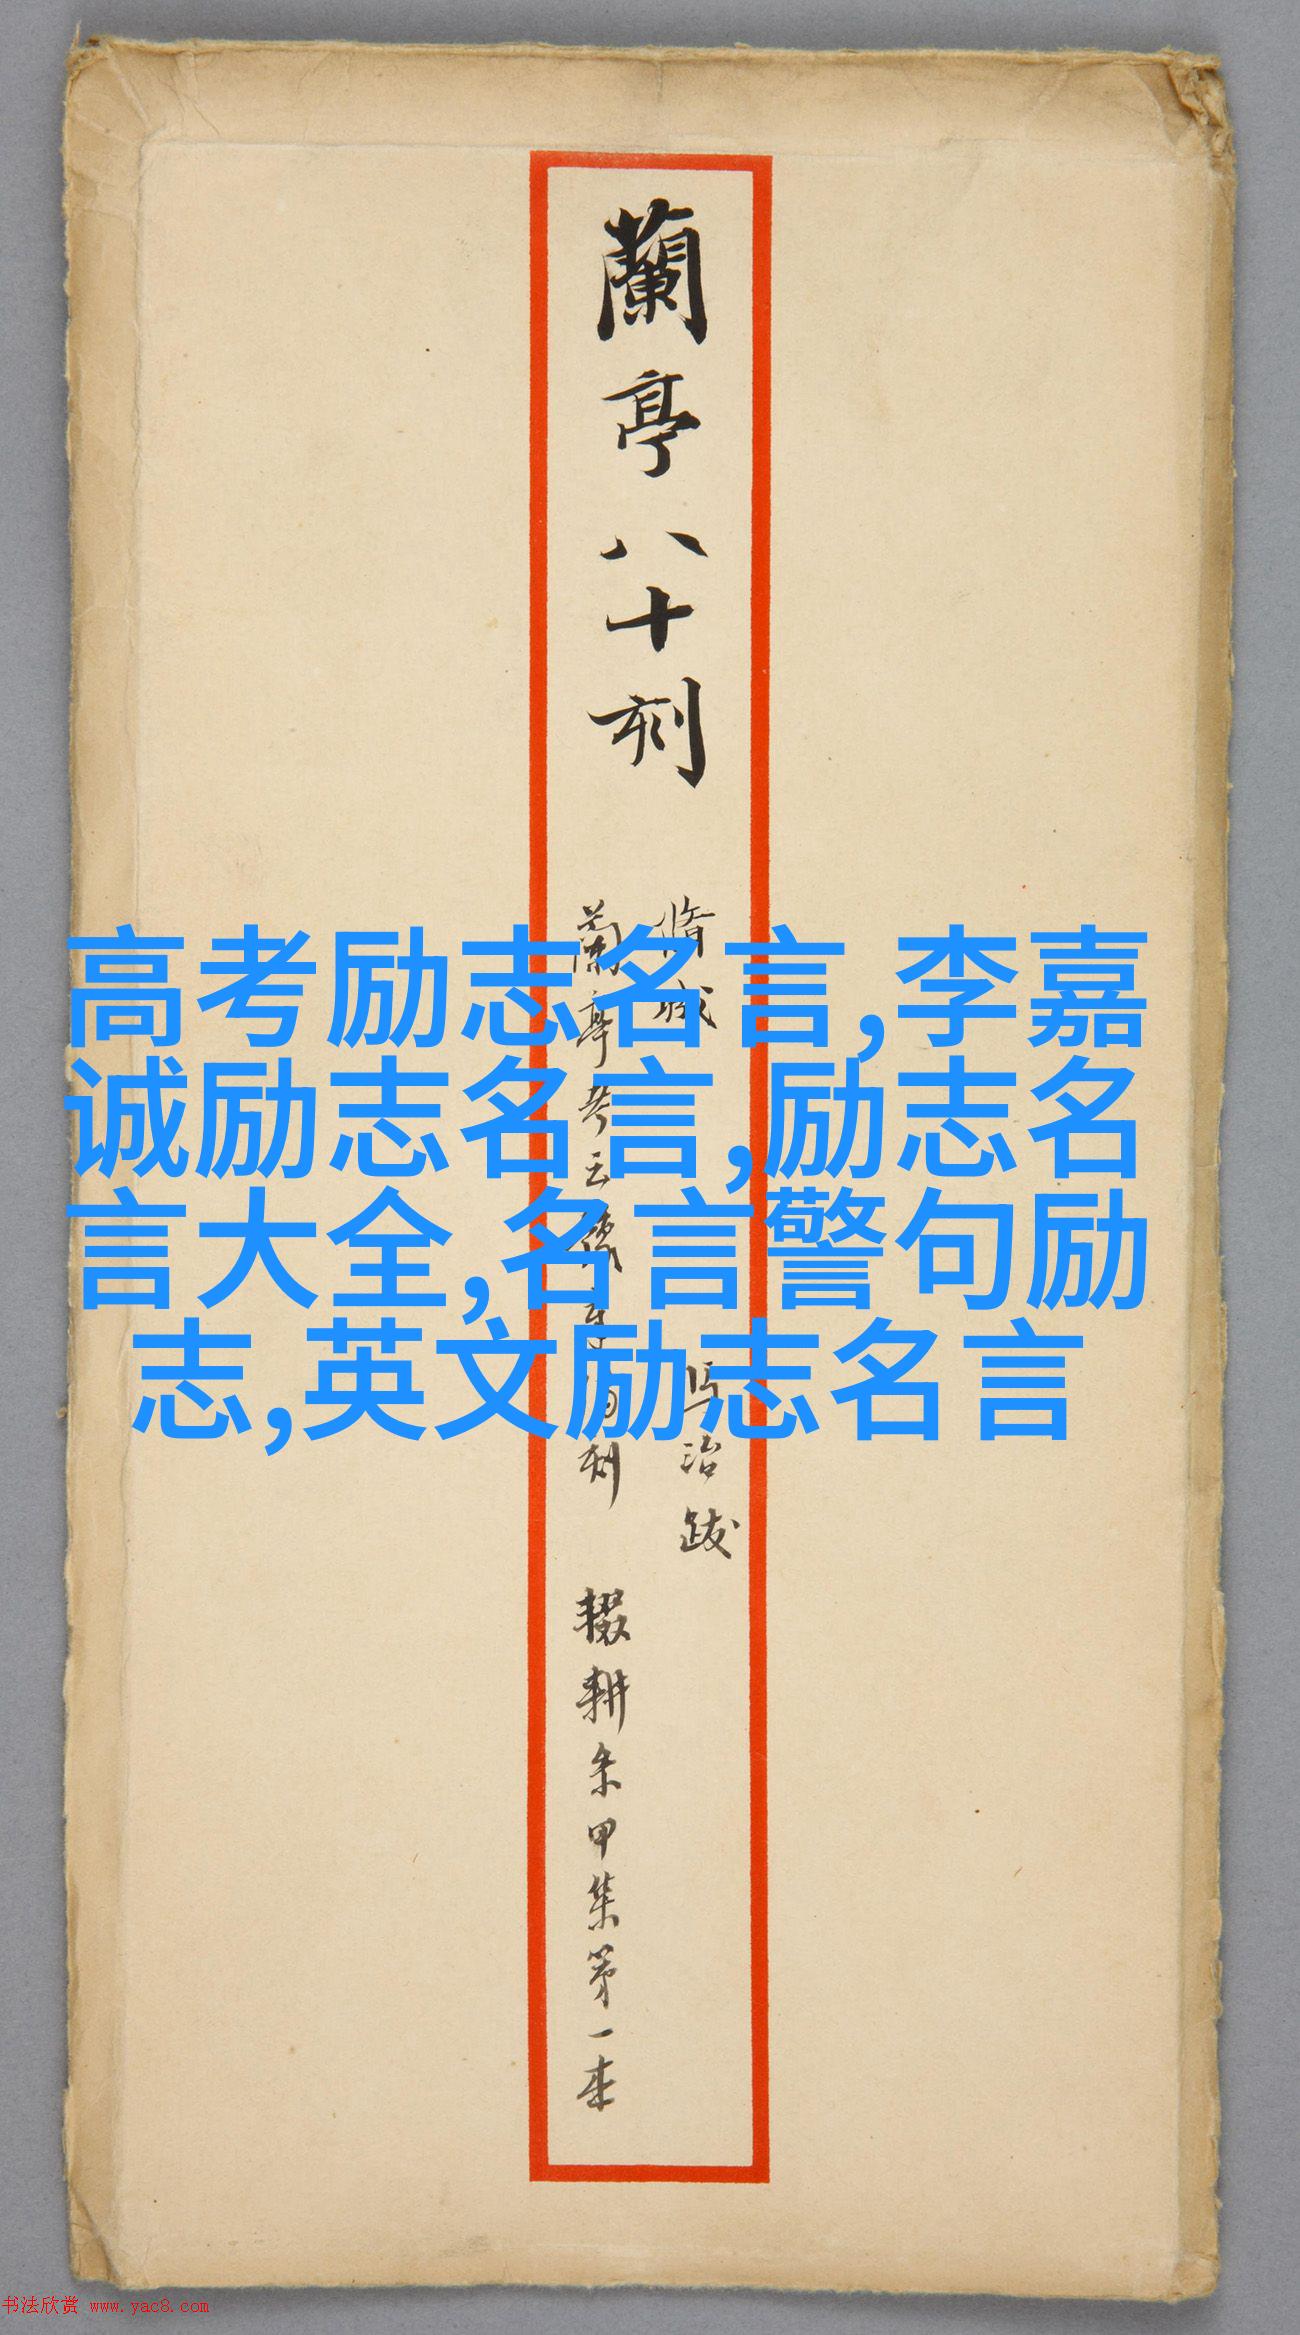 蘭亭八十刻
脩城
馬治跋
蘭亭考云
刻
輟耕
甲集第一本
高考励志名言,李嘉
诚励志名言,励志名
言大全,名言警句励
志,英文励志名言
书法欣赏 www.yac8.com